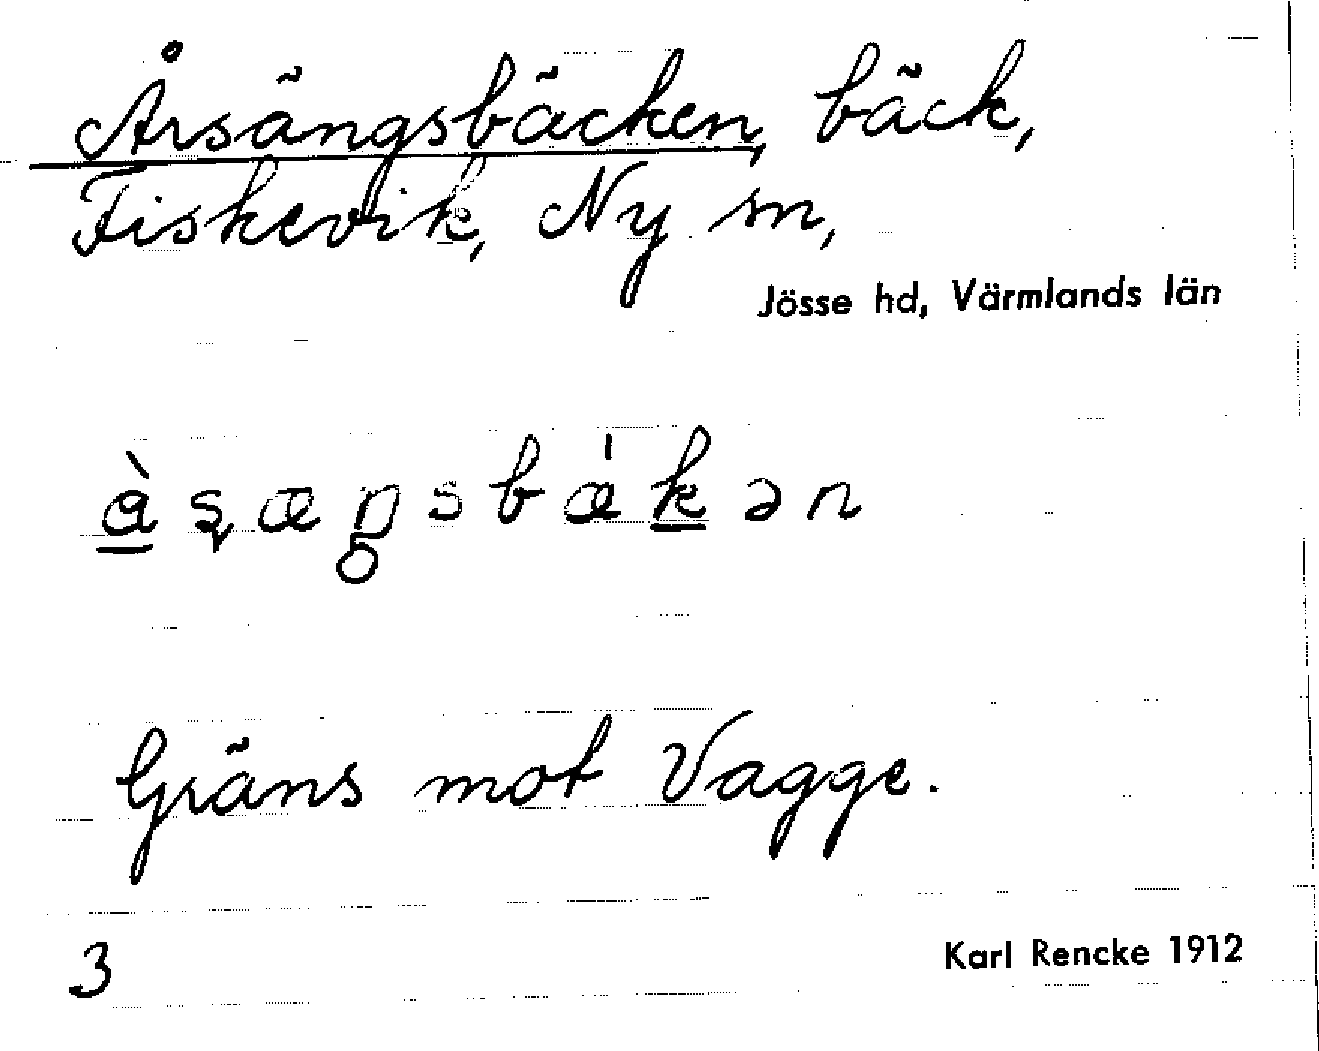 Årsängsbäcken, bäck,
Fiskevik, Ny sn,
Jösse hd, Värmlands län
å̀ʂæŋsbǽk̲ən
Gräns mot Vagge.
3
Karl Rencke 1912